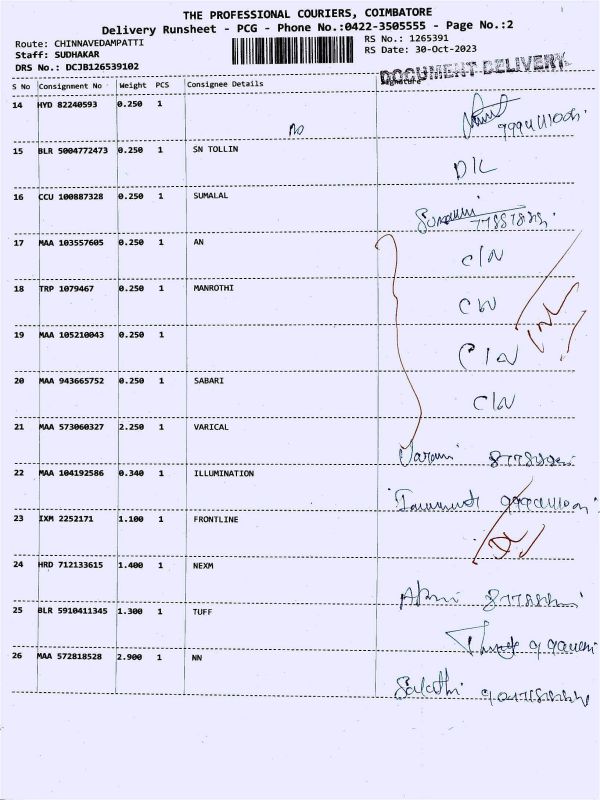 THE PROFESSIONAL COURIERS, COIMBATORE
Delivery Runsheet - PCG - Phone No.:0422-3505555 - Page No.:2
Route: CHINNAVEDAMPATTI RS No.: 1265391
Staff: SUDHAKAR RS Date: 30-Oct-2023
DRS No.: DCJB126539102
DOCUMENT DELIVERY
S No Consignment No Weight PCS Consignee Details Signature
14 HYD 82240593 0.250 1
No
15 BLR 5004772473 0.250 1 SN TOLLIN
D/L
16 CCU 100887328 0.250 1 SUMALAL
17 MAA 103557605 0.250 1 AN
C/N
18 TRP 1079467 0.250 1 MANROTHI
C/N
19 MAA 105210043 0.250 1
C/N
20 MAA 943665752 0.250 1 SABARI
C/N
21 MAA 573060327 2.250 1 VARICAL
22 MAA 104192586 0.340 1 ILLUMINATION
23 IXM 2252171 1.100 1 FRONTLINE
24 HRD 712133615 1.400 1 NEXM
25 BLR 5910411345 1.300 1 TUFF
26 MAA 572818528 2.900 1 NN